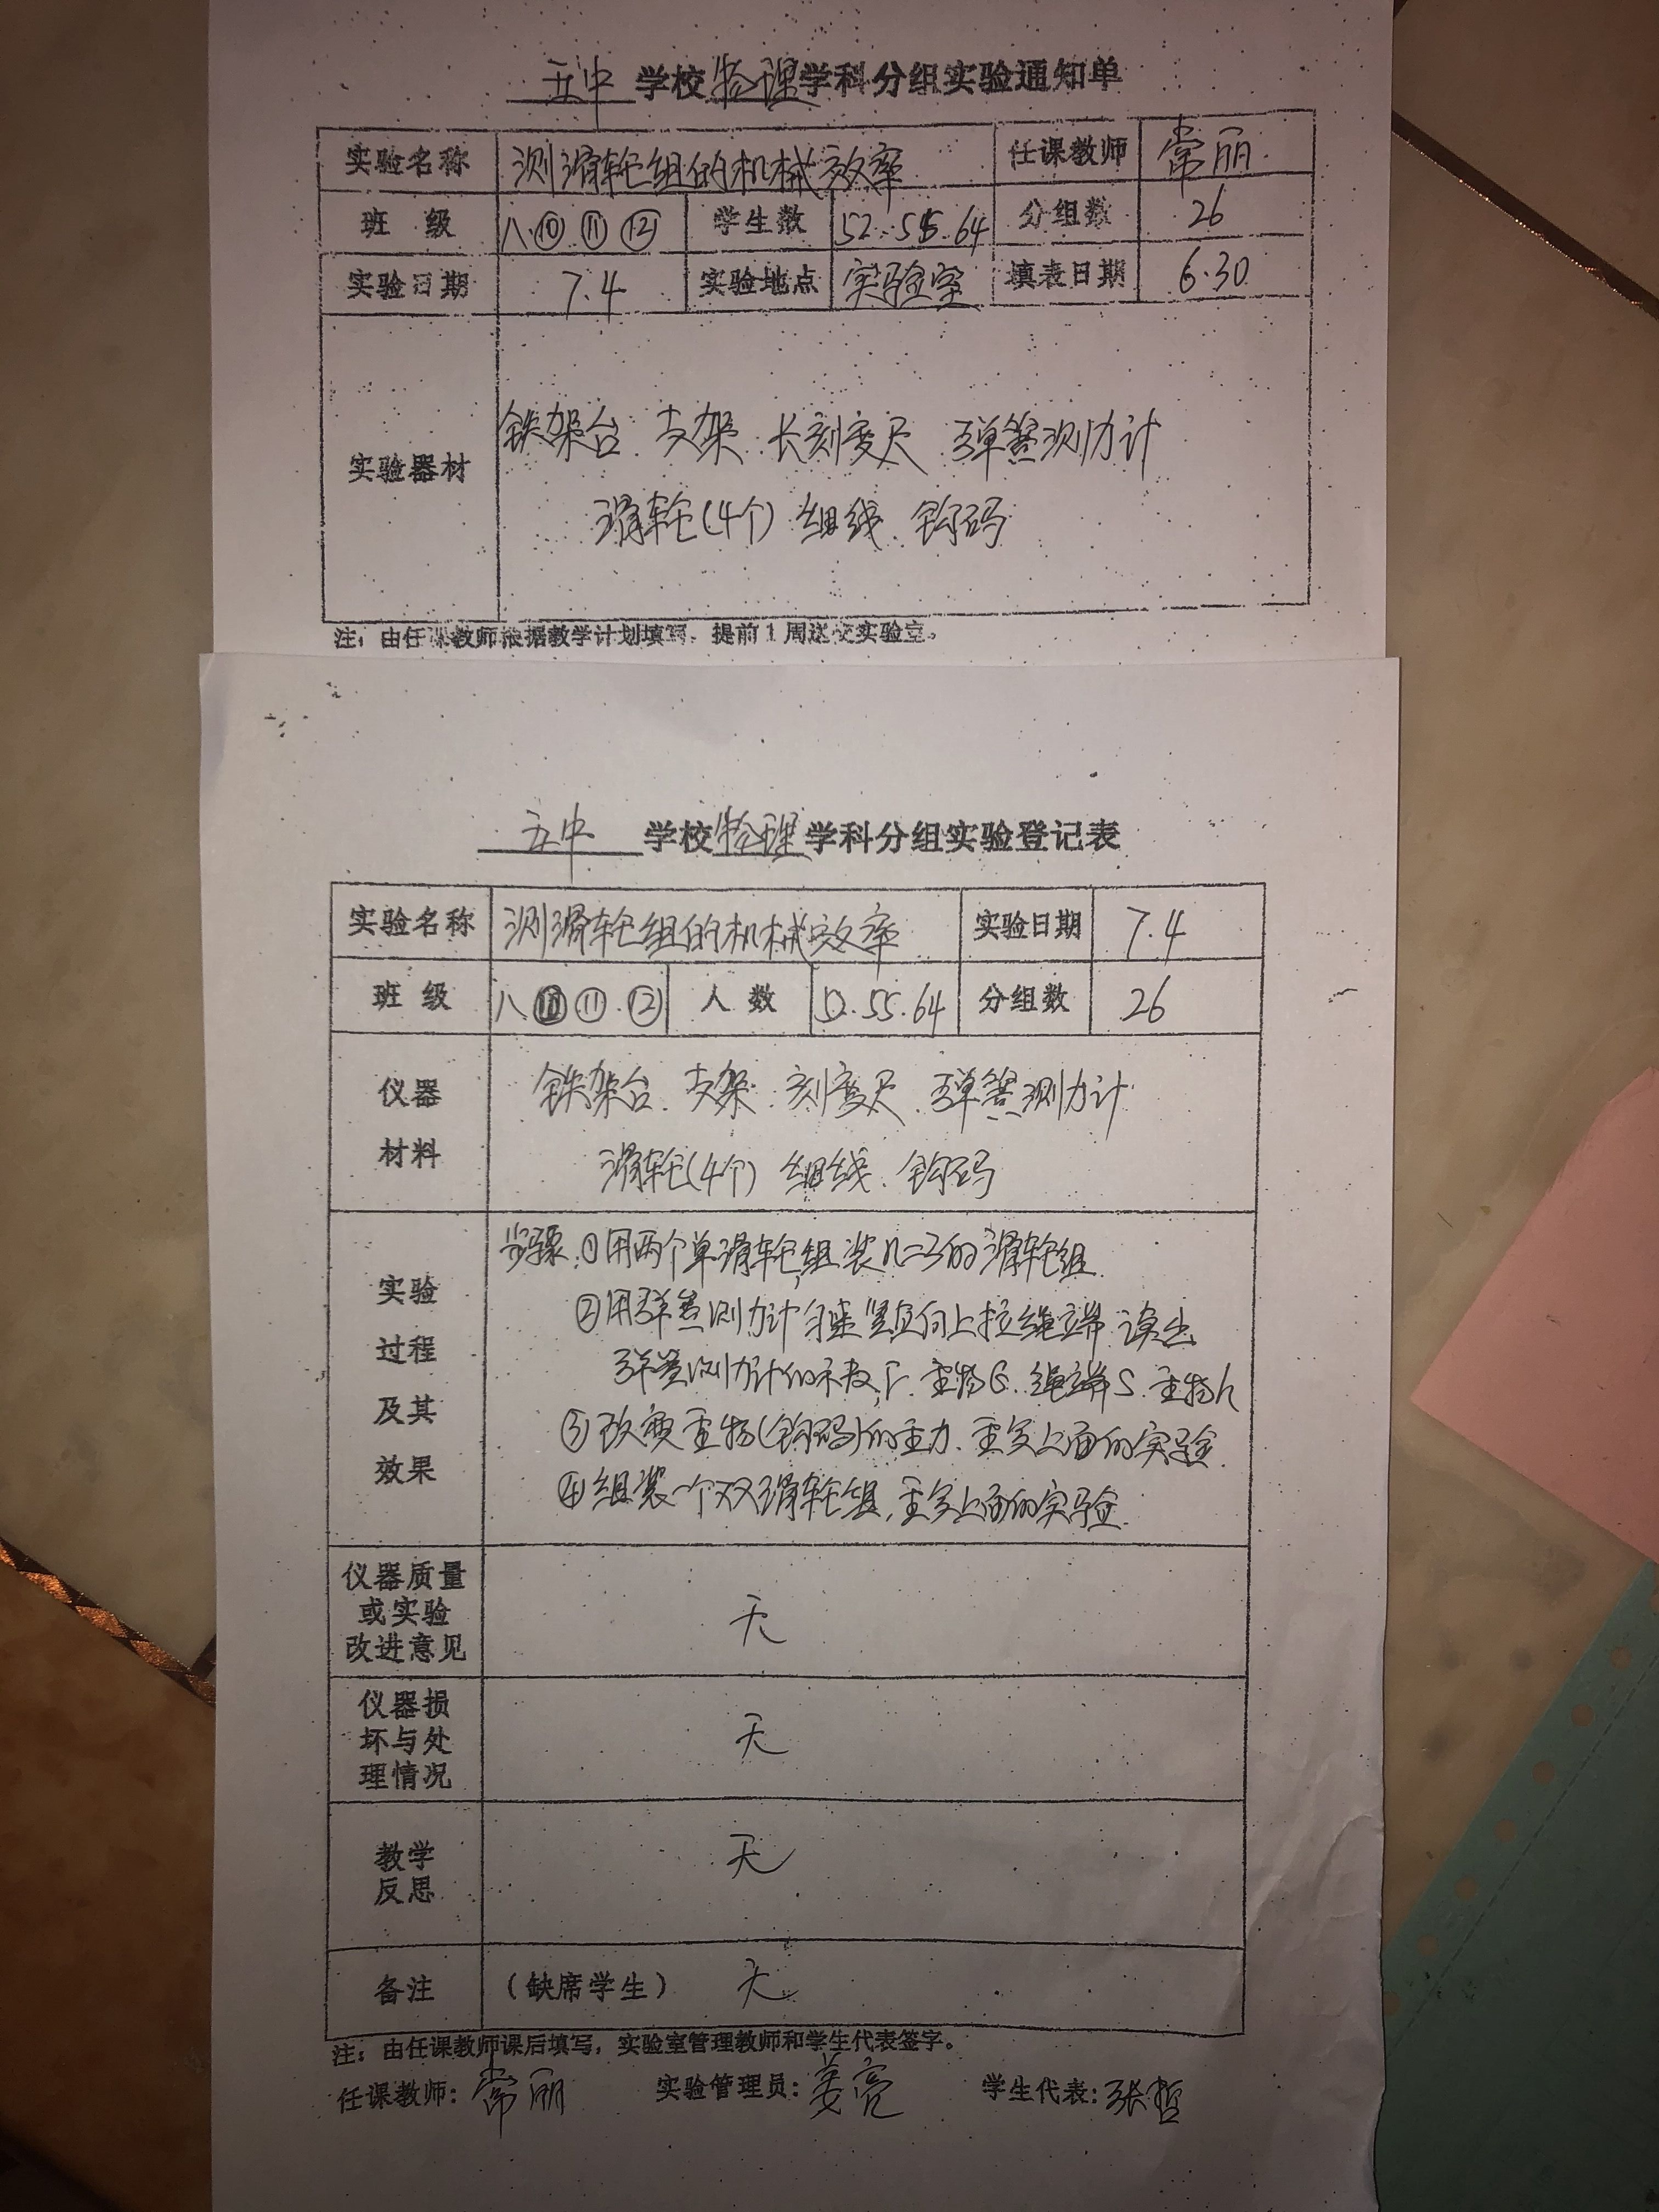 五中 学校物理学科分组实验通知单
实验名称 测滑轮组的机械效率 任课教师 常丽
班 级 八⑩ ⑪ ⑫ 学生数 52.55.64 分组数 26
实验日期 7.4 实验地点 实验室 填表日期 6.30
实验器材
铁架台 支架 长刻度尺 弹簧测力计
滑轮(4个) 细线、钩码
注：由任课教师根据教学计划填写，提前1周送交实验室。
五中 学校物理学科分组实验登记表
实验名称 测滑轮组的机械效率 实验日期 7.4
班 级 八⑩ ⑪ ⑫ 人 数 52.55.64 分组数 26
仪器
材料
铁架台、支架、刻度尺、弹簧测力计
滑轮(4个) 细线、钩码
实验
过程
及其
效果
步骤：①用两个单滑轮,组装n=3的滑轮组.
②用弹簧测力计匀速竖直向上拉绳端 读出
弹簧测力计的示数,F. 重物G. 绳端S. 重物h
③改变重物(钩码)的重力、重复上面的实验.
④组装一个双滑轮组,重复上面的实验.
仪器质量
或实验
改进意见
无
仪器损
坏与处
理情况
无
教学
反思
无
备注 （缺席学生） 无
注：由任课教师课后填写，实验室管理教师和学生代表签字。
任课教师：常丽 实验管理员：姜亮 学生代表：张哲